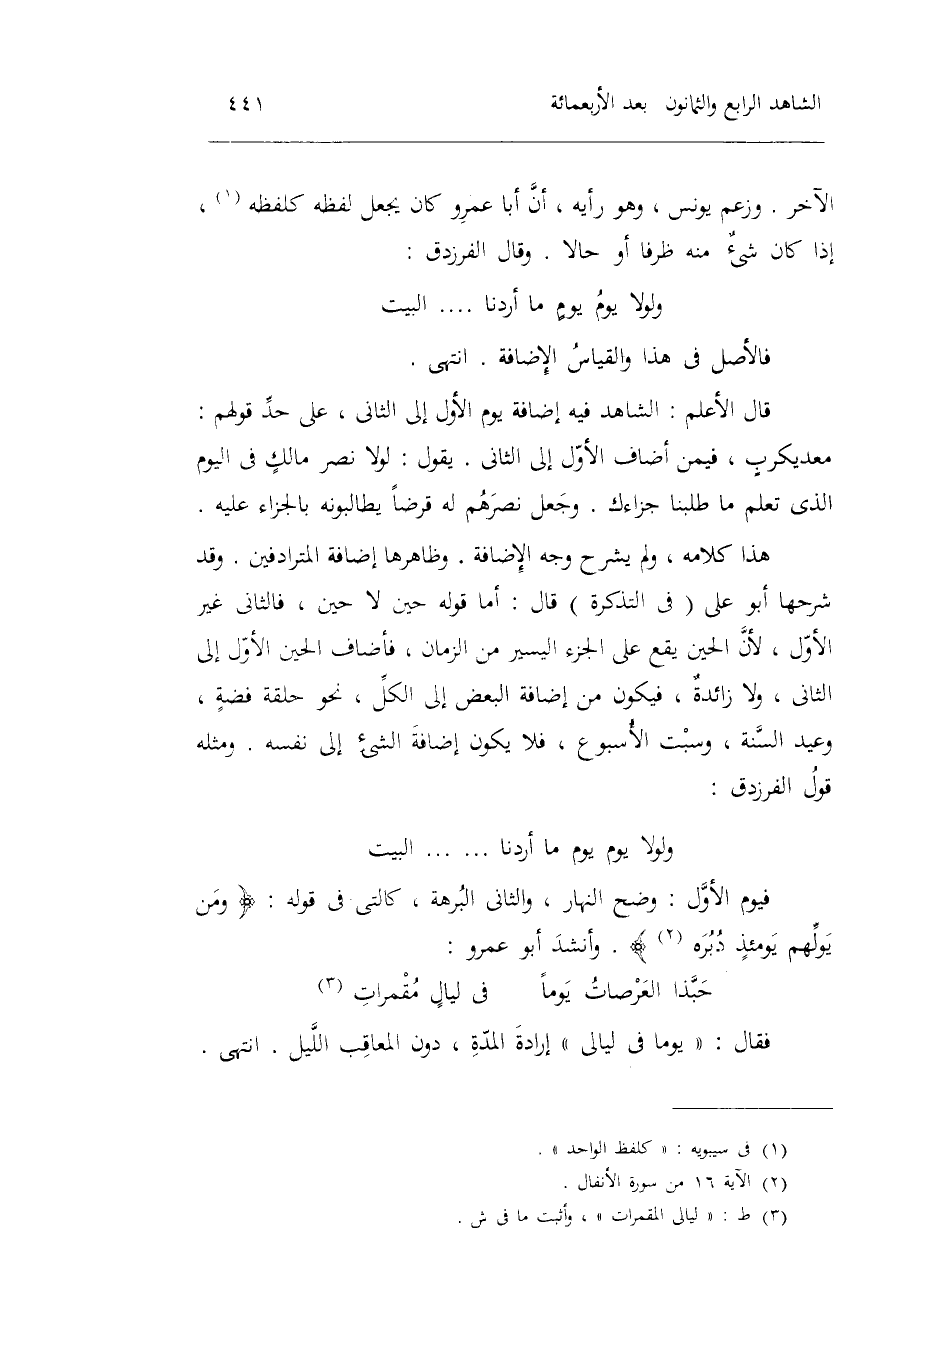 الشاهد الرابع والثمانون بعد الأربعمائة ٤٤١
الآخر . وزعم يونس ، وهو رأيه ، أنَّ أبا عمرِو كان يجعل لفظه كلفظه (١) ،
إذا كان شىءٌ منه ظرفا أو حالا . وقال الفرزدق :
ولولا يومُ يومٍ ما أردنا .... البيت
فالأصل فى هذا والقياسُ الإِضافة . انتهى .
قال الأعلم : الشاهد فيه إضافة يوم الأوّل إلى الثانى ، على حدِّ قولهم :
معديكربٍ ، فيمن أضاف الأوّل إلى الثانى . يقول : لولا نصر مالكٍ فى اليوم
الذى تعلم ما طلبنا جزاءك . وجَعل نصرَهُم له قرضاً يطالبونه بالجزاء عليه .
هذا كلامه ، ولم يشرح وجه الإِضافة . وظاهرها إضافة المترادفين . وقد
شرحها أبو على ( فى التذكرة ) قال : أما قوله حين لا حين ، فالثانى غير
الأوّل ، لأنَّ الحين يقع على الجزء اليسير من الزمان ، فأضاف الحين الأوّل إلى
الثانى ، ولا زائدةٌ ، فيكون من إضافة البعض إلى الكلِّ ، نحو حلقة فضةٍ ،
وعيد السَّنة ، وسبْت الأُسبوع ، فلا يكون إضافةَ الشىءِ إلى نفسه . ومثله
قولُ الفرزدق :
ولولا يوم يوم ما أردنا ... ... البيت
فيوم الأوَّل : وضح النهار ، والثانى البُرهة ، كالتى فى قوله : ﴿ ومَن
يَولِّهم يَومئذٍ دُبُرَه (٢) ﴾ . وأنشدَ أبو عمرو :
حَبَّذا العَرْصاتُ يَوماً فى ليالٍ مُقْمراتِ (٣)
فقال : « يوما فى ليالى » إرادةَ المدّةِ ، دون المعاقِب اللَّيل . انتهى .
(١) فى سيبويه : « كلفظ الواحد » .
(٢) الآية ١٦ من سورة الأنفال .
(٣) ط : « ليالى المقمرات » ، وأثبت ما فى ش .